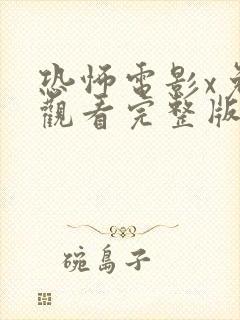 恐怖電影x免
觀看完整版
碗島子